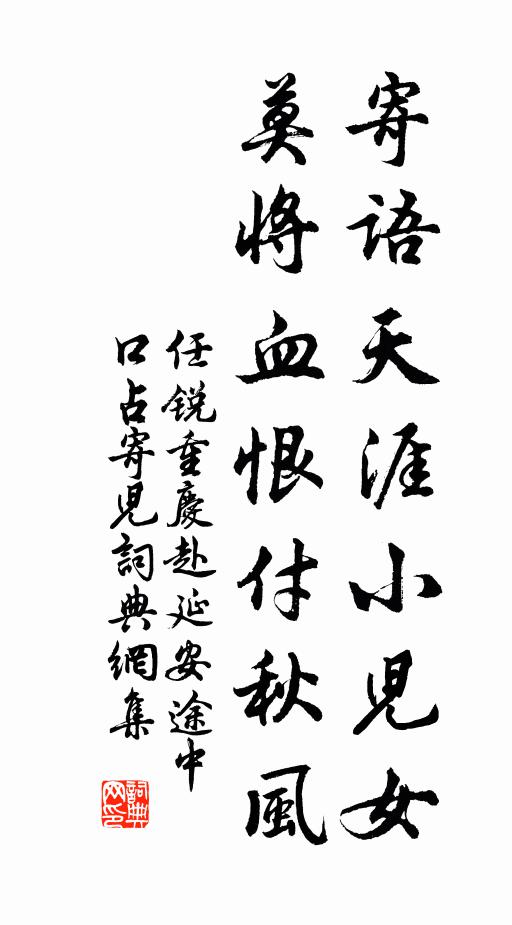 寄語天涯小兒女
莫將血恨付秋風
任銳重慶赴延安途中
口占寄児詞典網集
詞典
网印